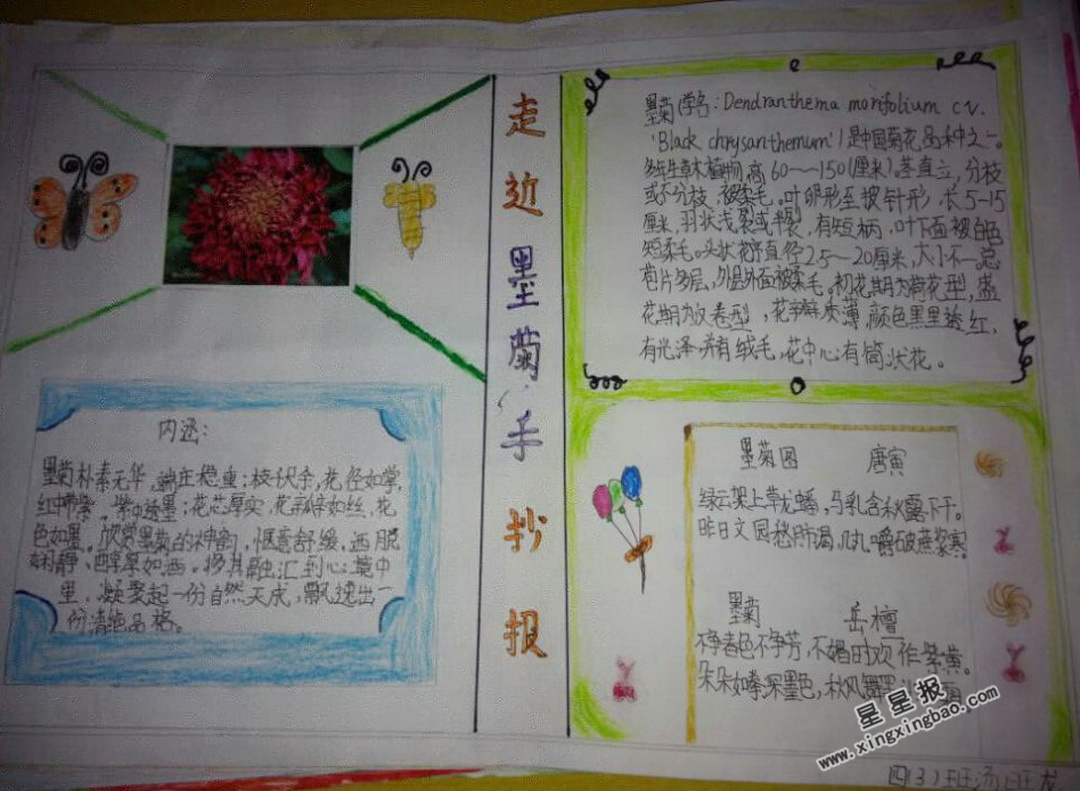 走近墨菊手抄报
内涵:
墨菊朴素无华,端庄稳重;枝
花,径如掌,
红中带紫,紫中透墨;花芯厚实,花瓣如丝,花
色如墨。欣赏墨菊的神韵,惬意舒缓,洒脱
娴静、醇厚如酒。将其融汇到心境中
里,凝聚起一份自然天成,飘逸出一
份清绝品格。
墨菊(学名:Dendranthema morifolium cv.
'Black chrysanthemum')是中国菊花品种之一。
多年生草本植物,高60~150(厘米)。茎直立,分枝
或不分枝,被柔毛。叶卵形至披针形,长5-15
厘米,羽状浅裂或半裂,有短柄,叶下面被白色
短柔毛。头状花序直径2.5~20厘米,大小不一。总
苞片多层,外层外面被柔毛。初花期为荷花型,盛
花期为反卷型,花瓣质薄,颜色黑里透红,
有光泽并有绒毛,花中心有筒状花。
墨菊图 唐寅
绿云架上草龙蟠,马乳含秋露下干。
昨日文园愁肺渴,几丸嚼破蔗浆寒。
墨菊 岳檀
不争春色不争芳,不媚时欢作紫黄。
朵朵如拳深墨色,秋风舞
星星报
www.xingxingbao.com
四(3)班汤